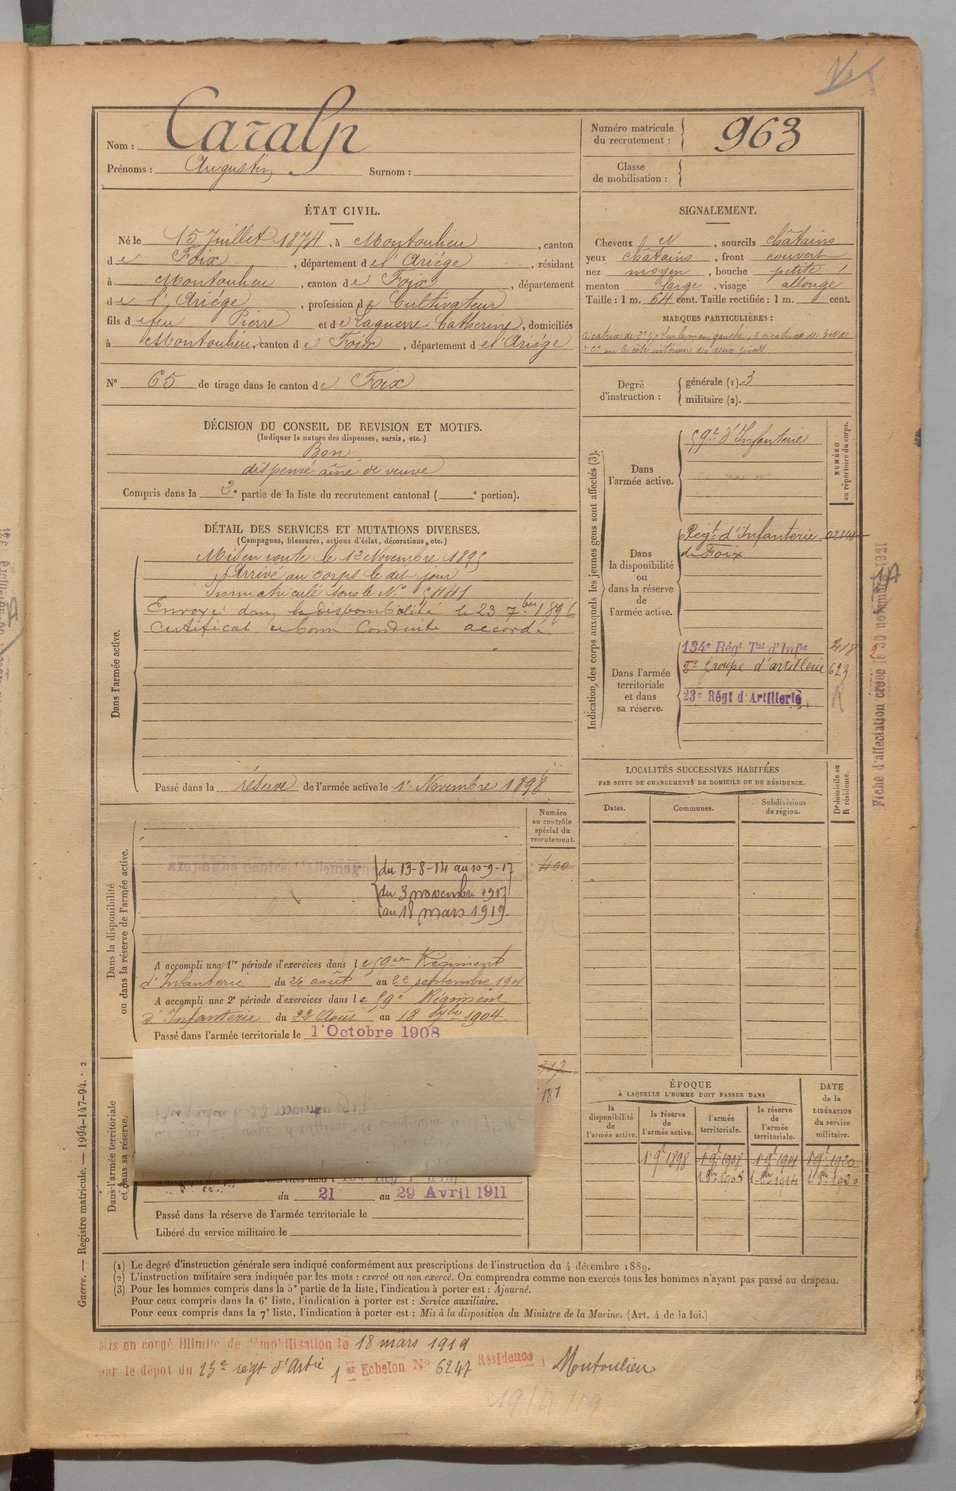 Nom : Caralp
Prénoms : Augustin Surnom :
Numéro matricule du recrutement : 963
Classe de mobilisation :
ÉTAT CIVIL.
Né le 15 Juillet 1874, à Montoulieu, canton
de Foix, département de l'Ariège, résidant
à Montoulieu, canton de Foix, département
de l'Ariège, profession de Cultivateur
fils de feu Pierre et de Laguerre Catherine, domiciliés
à Montoulieu, canton de Foix, département de l'Ariège
N° 65 de tirage dans le canton de Foix
SIGNALEMENT.
Cheveux , sourcils châtains
yeux châtains, front couvert
nez moyen, bouche petite
menton large, visage allongé
Taille : 1 m. 64 cent. Taille rectifiée : 1 m. cent.
MARQUES PARTICULIÈRES :
Degré d'instruction : générale (1). 3
militaire (2).
DÉCISION DU CONSEIL DE REVISION ET MOTIFS.
(Indiquer la nature des dispenses, sursis, etc.)
Bon
dispensé aîné de veuve
Compris dans la 2e partie de la liste du recrutement cantonal ( e portion).
DÉTAIL DES SERVICES ET MUTATIONS DIVERSES.
(Campagnes, blessures, actions d'éclat, décorations, etc.)
Dans l'armée active.
Mis en route le 12 Novembre 1895
Arrivé au corps le dit jour
Immatriculé sous le N°
Envoyé dans la disponibilité le 23 7bre 1896
Certificat de bonne Conduite accordé
Passé dans la réserve de l'armée active le 1er Novembre 1898
Indication des corps auxquels les jeunes gens sont affectés (3).
NUMÉRO au répertoire du corps.
Dans l'armée active.
59e d'Infanterie
Dans la disponibilité ou dans la réserve de l'armée active.
Régt d'Infanterie
de Foix
Dans l'armée territoriale et dans sa réserve.
134e Régt Tal d'Infie 418
2e Groupe d'artillerie 623
23e Régt d'Artillerie
Fiche d'affectation créée le 30 novembre 1921
LOCALITÉS SUCCESSIVES HABITÉES
PAR SUITE DE CHANGEMENTS DE DOMICILE OU DE RÉSIDENCE.
D domicile ou R résidence.
Dates. Communes. Subdivisions de région.
Dans la disponibilité ou dans la réserve de l'armée active.
Numéro au contrôle spécial du recrutement.
400
ampagne contre l'Allemagne du 13-8-14 au 10-9-17
du 3 novembre 1917
au 18 mars 1919.
A accompli une 1re période d'exercices dans le 59e Régiment
d'Infanterie du 26 août au 22 septembre 1901
A accompli une 2e période d'exercices dans le 59e Régiment
d'Infanterie du 22 Août au 18 7bre 1904.
Passé dans l'armée territoriale le 1er Octobre 1908
Dans l'armée territoriale et dans sa réserve.
181
du 21 au 29 Avril 1911
Passé dans la réserve de l'armée territoriale le
Libéré du service militaire le
ÉPOQUE
À LAQUELLE L'HOMME DOIT PASSER DANS
la disponibilité de l'armée active. la réserve de l'armée active. l'armée territoriale. la réserve de l'armée territoriale.
DATE de la LIBÉRATION du service militaire.
Guerre. — Registre matricule. — 1904-147-94. 2
(1) Le degré d'instruction générale sera indiqué conformément aux prescriptions de l'instruction du 4 décembre 1889.
(2) L'instruction militaire sera indiquée par les mots : exercé ou non exercé. On comprendra comme non exercés tous les hommes n'ayant pas passé au drapeau.
(3) Pour les hommes compris dans la 5e partie de la liste, l'indication à porter est : Ajourné.
Pour ceux compris dans la 6e liste, l'indication à porter est : Service auxiliaire.
Pour ceux compris dans la 7e liste, l'indication à porter est : Mis à la disposition du Ministre de la Marine. (Art. 4 de la loi.)
mis en congé illimité de démobilisation le 18 mars 1919
par le dépôt du 23e régt d'Artie 1er Echelon N° 6247 Résidence : Montoulieu